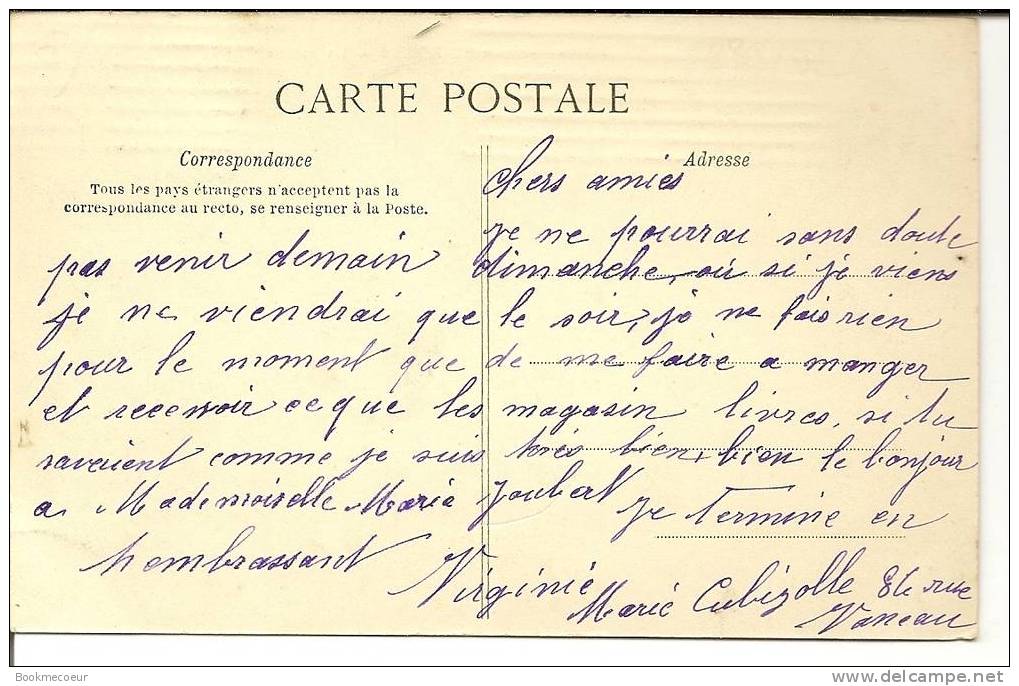 CARTE POSTALE
Correspondance
Adresse
Tous les pays étrangers n'acceptent pas la
correspondance au recto, se renseigner à la Poste.
chers amies
je ne pourrai sans doute
pas venir demain dimanche, ou si je viens
je ne viendrai que le soir, je ne fais rien
pour le moment que de me faire a manger
et recevoir ce que les magasin livres, si tu
savaient comme je suis très bien, bien le bonjour
a Mademoiselle Marie Joubert je termine en
t'embrassant Virginie
Marie Cubizolle 86 rue
Vaneau
Bookmecoeur
www.delcampe.net